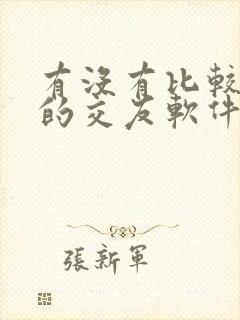 有沒有比較
的交友軟件
張新軍